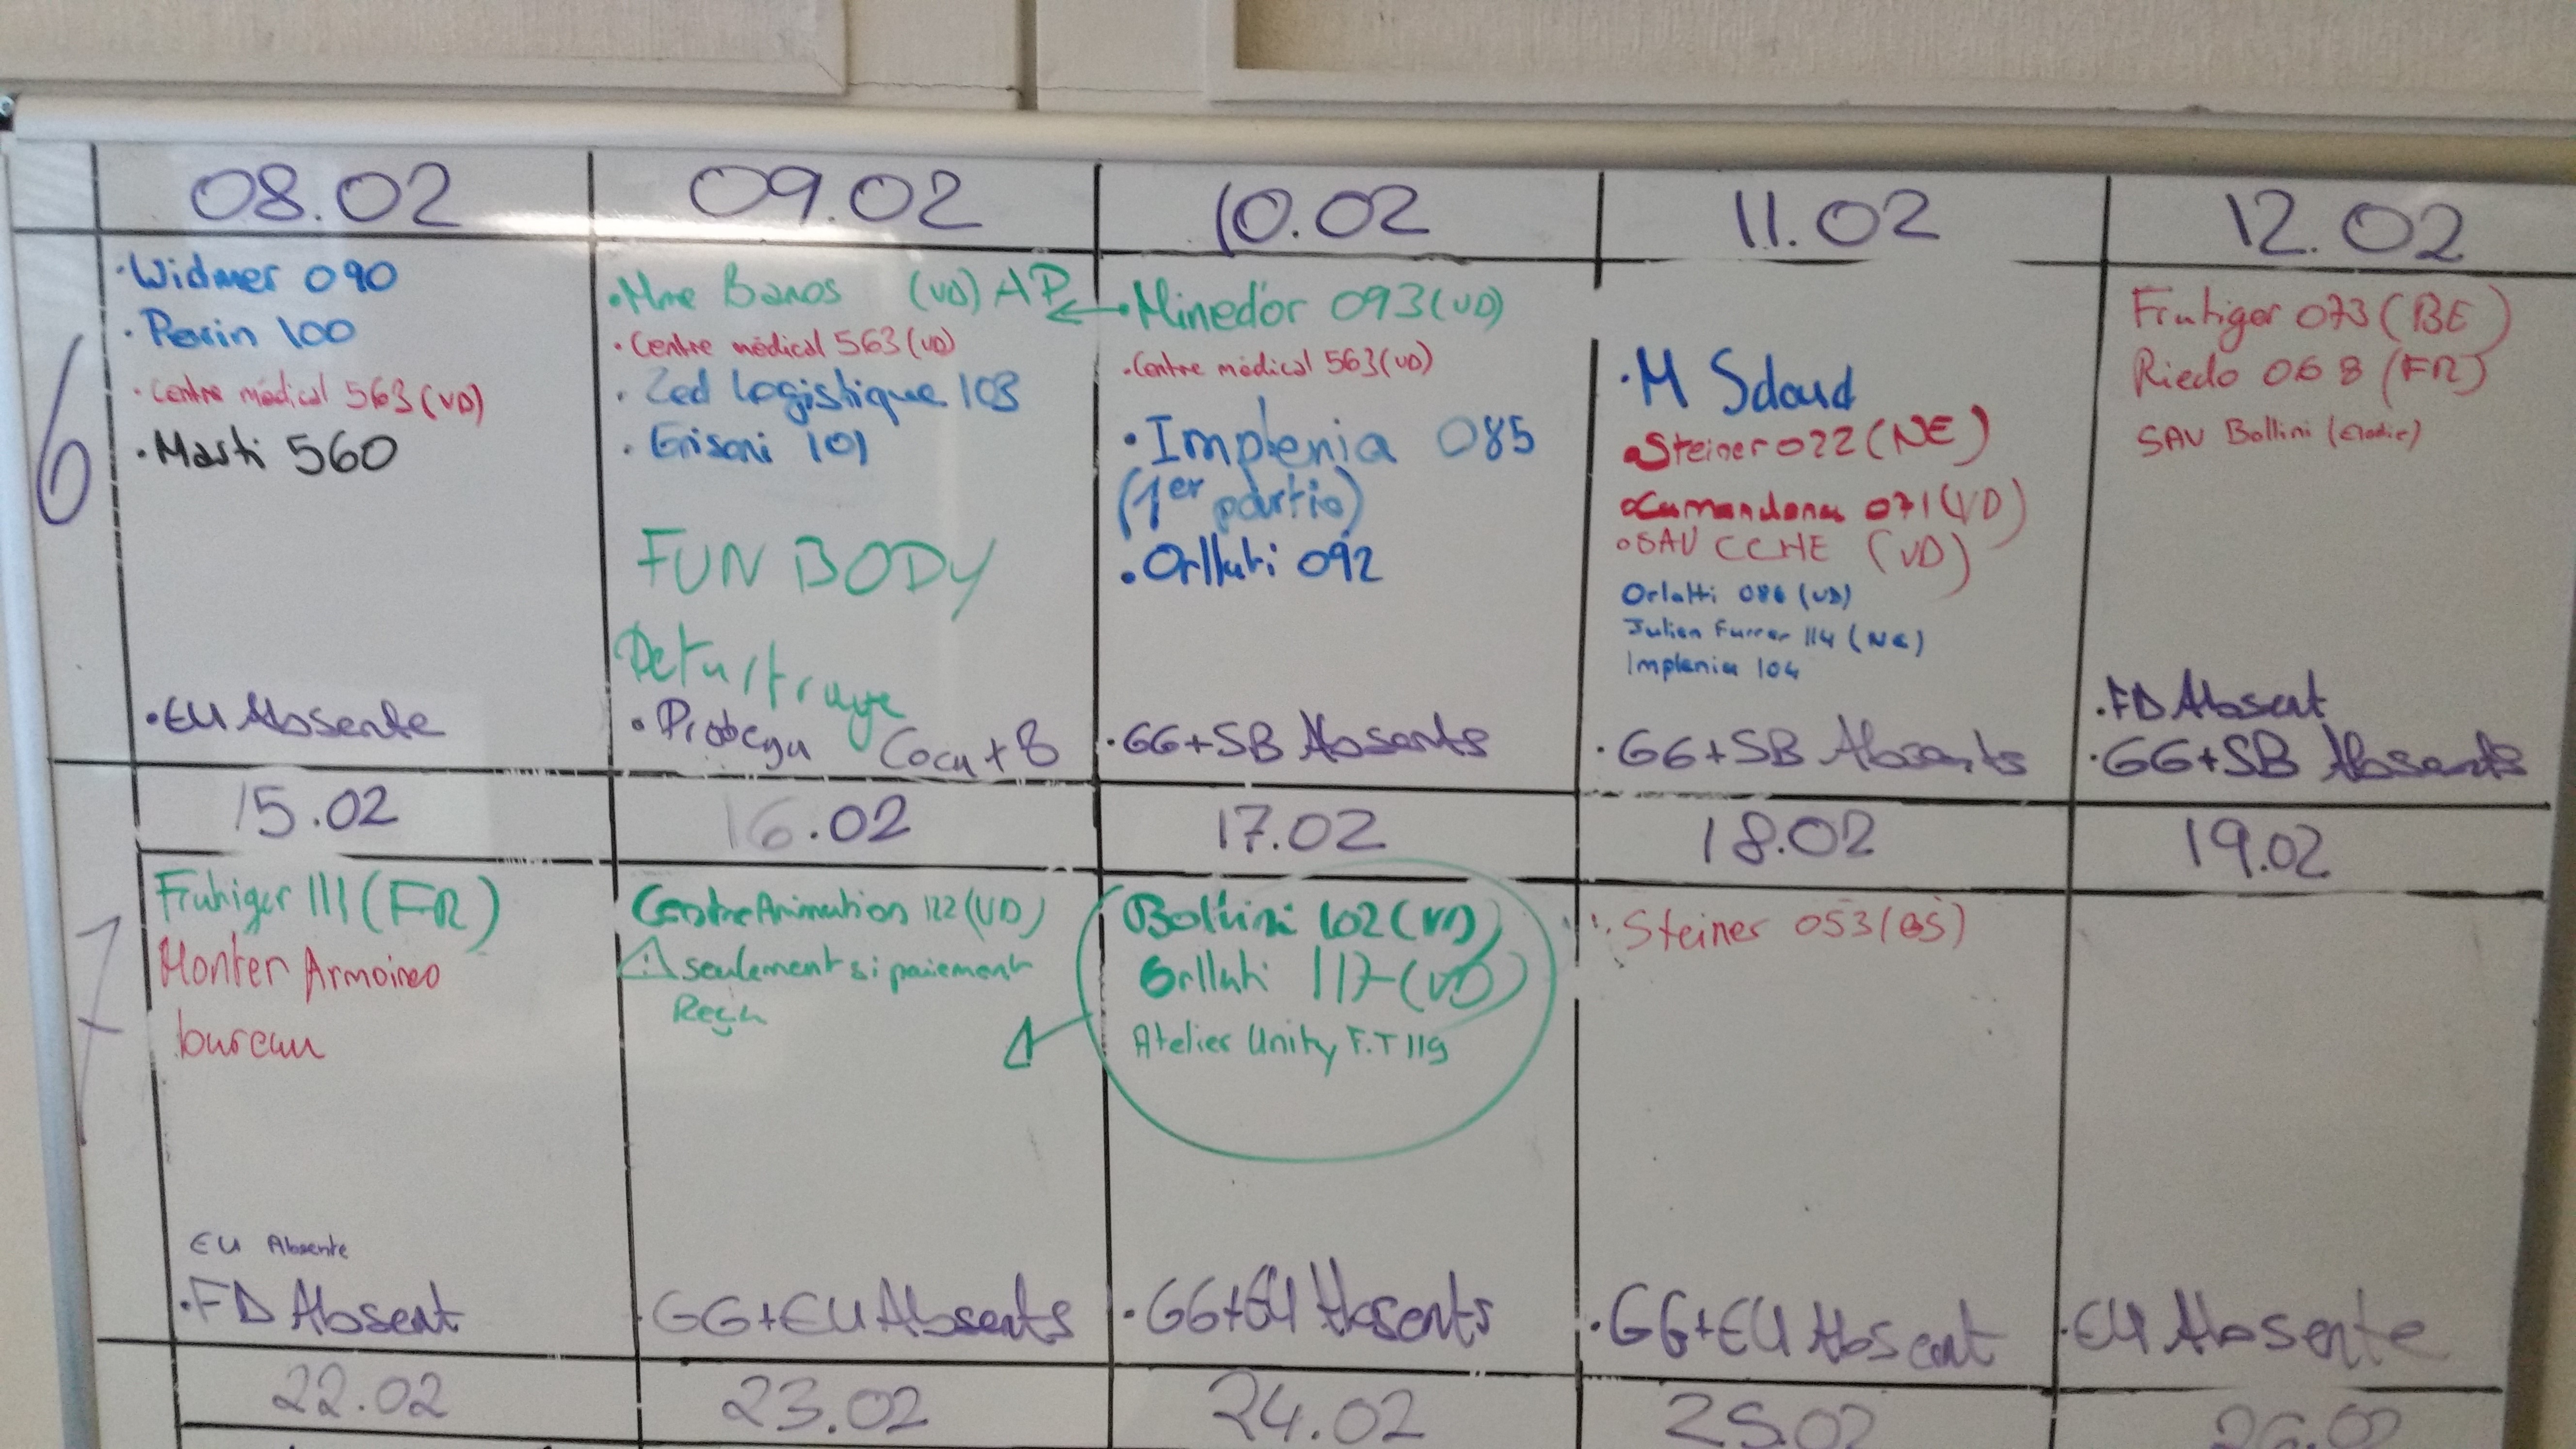 08.02
09.02
10.02
11.02
12.02
6
·Widmer 090
·Perin 100
·Centre médical 563(VD)
·Marti 560
·EU Absente
·Mme Banos (VD) AP
·Centre médical 563(VD)
·Zed Logistique 103
·Grisoni 101
FUN BODY
·Probega Coca + 8
·Minedor 093(VD)
·Centre médical 563(VD)
·Implenia 085
(1er partie)
·Orllati 092
·GG+SB Absents
·M Sdoud
·Steiner 022 (NE)
·Camandona 071(VD)
·SAV CCHE (VD)
Orlatti 086 (VD)
Julien Furrer 114 (NE)
Implenia 104
·GG+SB Absents
Frutiger 073 (BE)
Riedo 068 (FR)
SAV Bollini (Elodie)
·FD Absent
·GG+SB Absents
15.02
16.02
17.02
18.02
19.02
7
Frutiger 111 (FR)
Monter Armoires
bureau
EU Absente
·FD Absent
Centre Animation 122 (VD)
⚠ seulement si paiement
Reçu
·GG+EU Absents
Bollini 102 (VD)
Orllati 117 (VD)
Atelier Unity F.T 119
·GG+EU Absents
Steiner 053 (BS)
·GG+EU Absent
·EU Absente
22.02
23.02
24.02
25.02
26.02